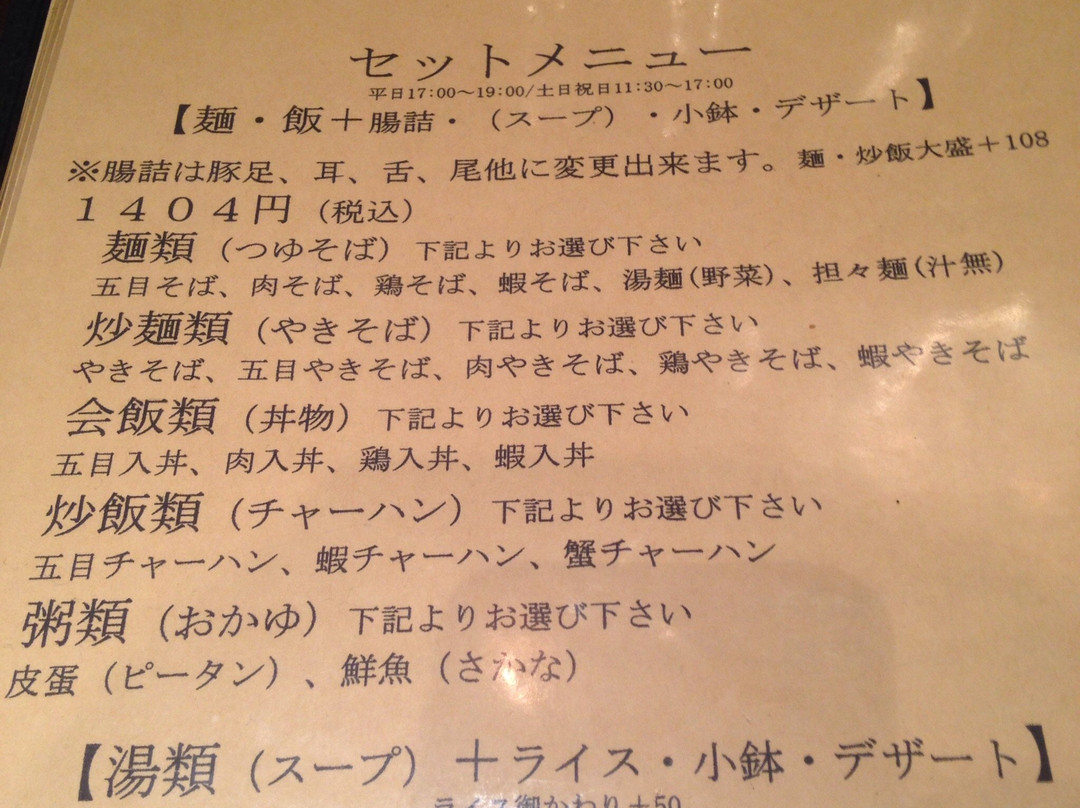 セットメニュー
平日17:00～19:00/土日祝日11:30～17:00
【麺・飯＋腸詰・（スープ）・小鉢・デザート】
※腸詰は豚足、耳、舌、尾他に変更出来ます。麺・炒飯大盛＋108
１４０４円（税込）
麺類（つゆそば）下記よりお選び下さい
五目そば、肉そば、鶏そば、蝦そば、湯麺(野菜)、担々麺(汁無)
炒麺類（やきそば）下記よりお選び下さい
やきそば、五目やきそば、肉やきそば、鶏やきそば、蝦やきそば
会飯類（丼物）下記よりお選び下さい
五目入丼、肉入丼、鶏入丼、蝦入丼
炒飯類（チャーハン）下記よりお選び下さい
五目チャーハン、蝦チャーハン、蟹チャーハン
粥類（おかゆ）下記よりお選び下さい
皮蛋（ピータン）、鮮魚（さかな）
【湯類（スープ）＋ライス・小鉢・デザート】
ライス御かわり＋50